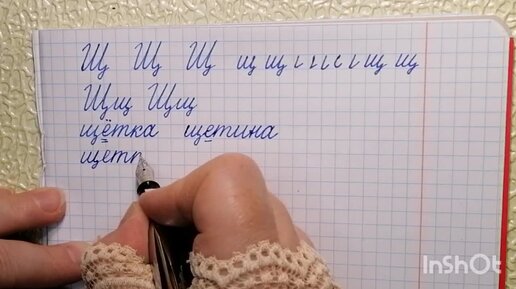 Щ Щ Щ щ щ ι ι ι с ι щ щ
Щщ Щщ
щётка щетина
щетп
InShOt